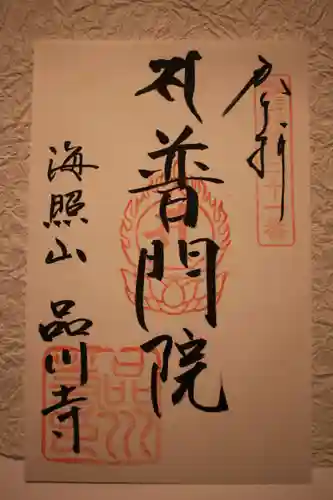 奉拝
普門院
海照山 品川寺